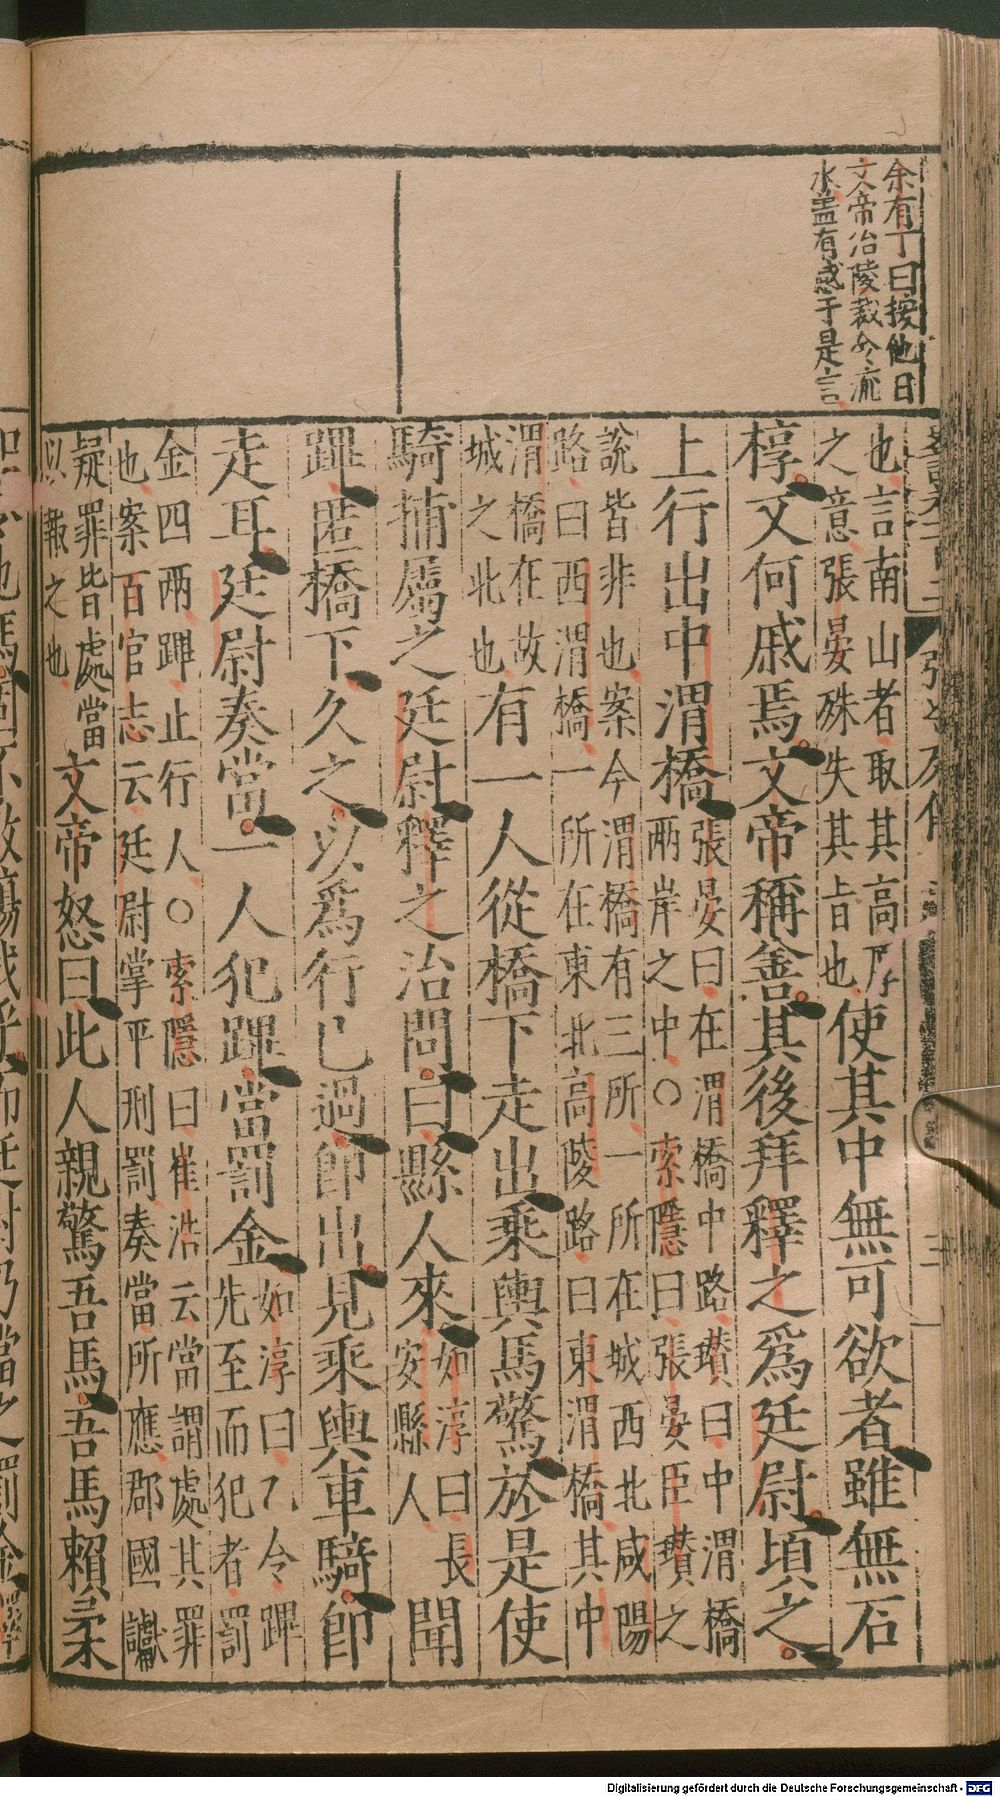 余有丁曰按他日
文帝治陵裁令流
水盖有感于是言
也言南山者取其高厚
之意張晏殊失其旨也
使其中無可欲者雖無石
椁又何戚焉文帝稱善其後拜釋之爲廷尉頃之
上行出中渭橋
張晏曰在渭橋中路瓉曰中渭橋
兩岸之中○索隱曰張晏臣瓉之
說皆非也案今渭橋有三所一所在城西北咸陽
路曰西渭橋一所在東北高陵路曰東渭橋其中
渭橋在故
城之北也
有一人從橋下走出乘輿馬驚於是使
騎捕屬之廷尉釋之治問曰縣人來
如淳曰長
安縣人
聞
蹕匿橋下久之以爲行已過卽出見乘輿車騎卽
走耳廷尉奏當一人犯蹕當罰金
如淳曰乙令蹕
先至而犯者罰
金四兩蹕止行人○索隱曰崔浩云當謂處其罪
也案百官志云廷尉掌平刑罰奏當所應郡國讞
疑罪皆處當
以報之也
文帝怒曰此人親驚吾馬吾馬賴柔
Digitalisierung gefördert durch die Deutsche Forschungsgemeinschaft - DFG